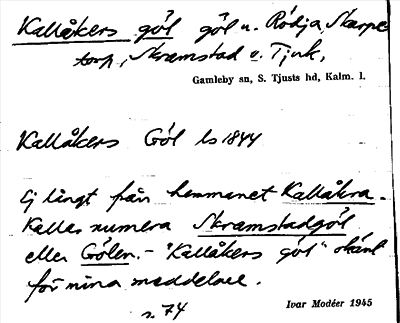 Kallåkers göl göl u. Rödja, Skarpe-
torp, Skramstad o. Tjuk,
Gamleby sn, S. Tjusts hd, Kalm. l.
Kallåkers Göl ls 1844
Ej långt från hemmanet Kallåkra.
Kallas numera Skramstadgöl
eller Gölen. - "Kallåkers göl" okänt
för mina meddelare.
s. 74
Ivar Modéer 1945